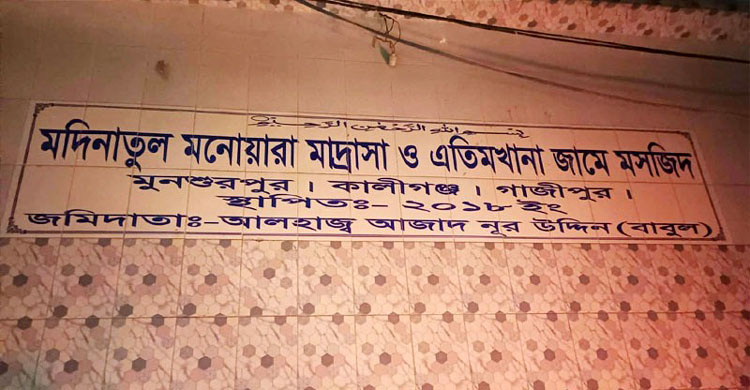 بسم الله الرحمن الرحيم
মদিনাতুল মনোয়ারা মাদ্রাসা ও এতিমখানা জামে মসজিদ
মুনশুরপুর । কালীগঞ্জ । গাজীপুর ।
স্থাপিতঃ- ২০১৮ ইং
জমিদাতাঃ-আলহাজ্ব আজাদ নূর উদ্দিন (বাবুল)